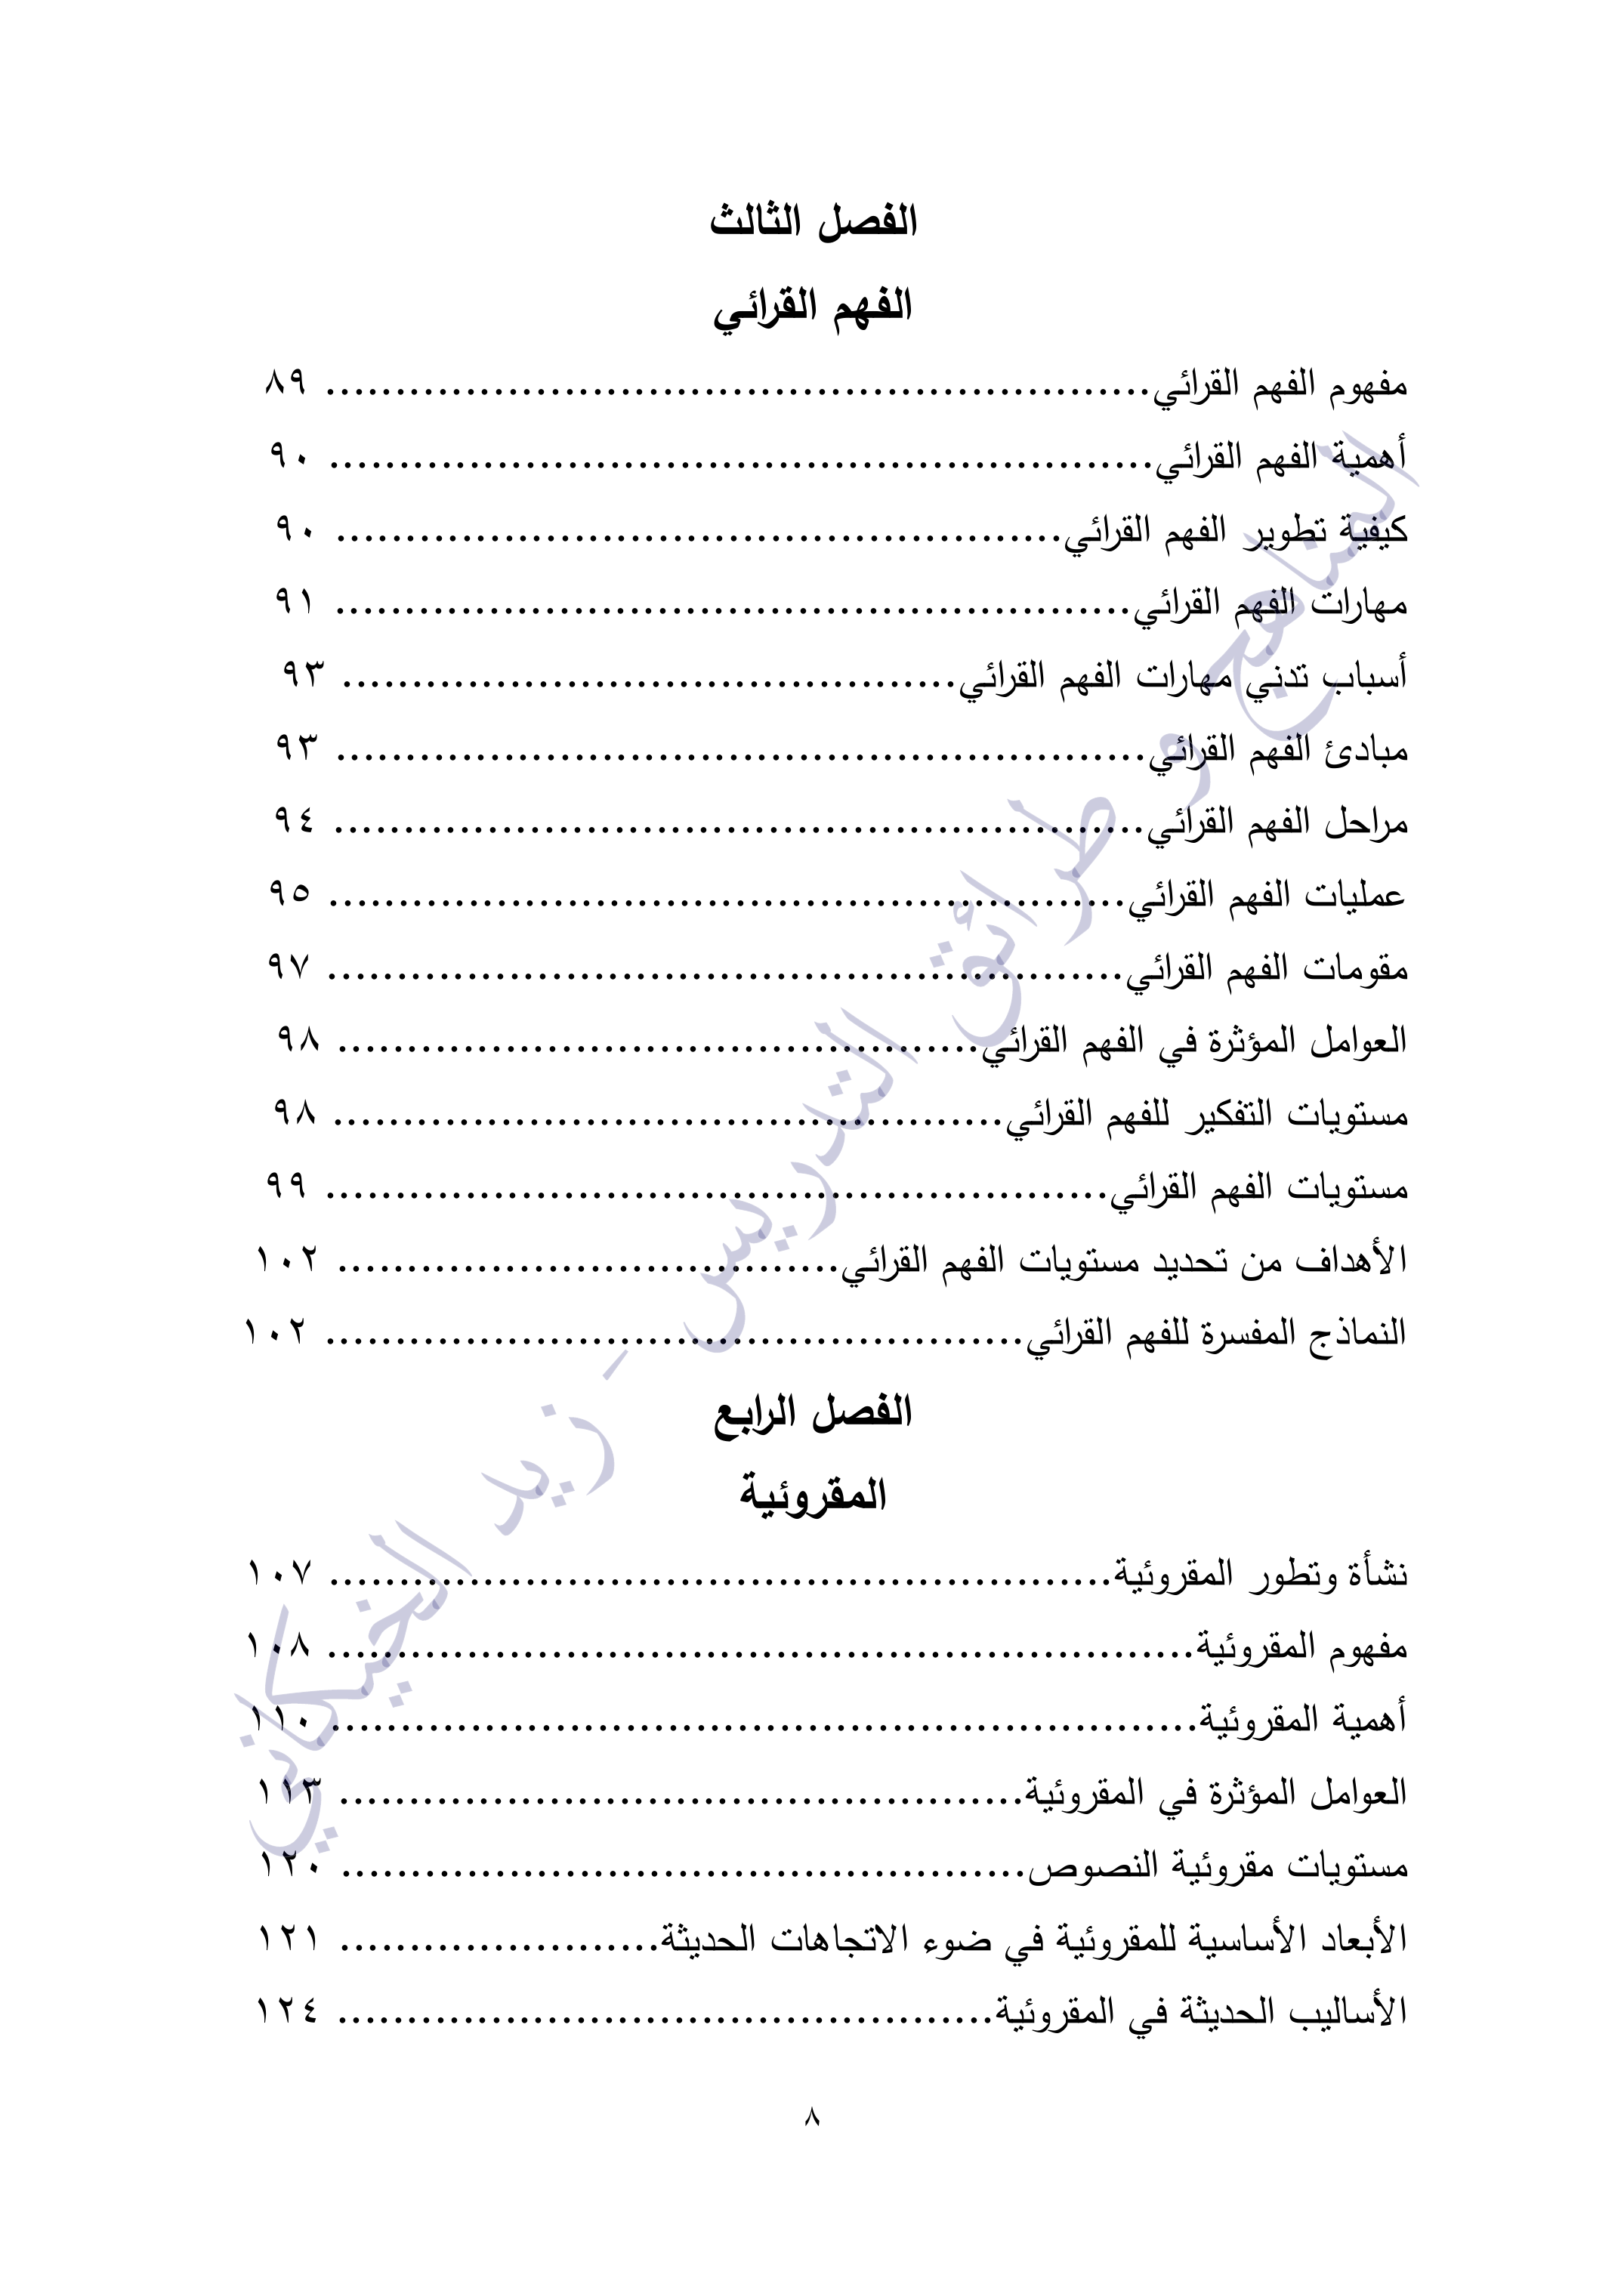 الفصل الثالث
الفهم القرائي
مفهوم الفهم القرائي........................................................... ٨٩
أهمية الفهم القرائي........................................................... ٩٠
كيفية تطوير الفهم القرائي.................................................... ٩٠
مهارات الفهم القرائي......................................................... ٩١
أسباب تدني مهارات الفهم القرائي............................................ ٩٣
مبادئ الفهم القرائي.......................................................... ٩٣
مراحل الفهم القرائي.......................................................... ٩٤
عمليات الفهم القرائي......................................................... ٩٥
مقومات الفهم القرائي......................................................... ٩٧
العوامل المؤثرة في الفهم القرائي.............................................. ٩٨
مستويات التفكير للفهم القرائي................................................ ٩٨
مستويات الفهم القرائي........................................................ ٩٩
الأهداف من تحديد مستويات الفهم القرائي.................................... ١٠٢
النماذج المفسرة للفهم القرائي.................................................. ١٠٢
الفصل الرابع
المقروئية
نشأة وتطور المقروئية........................................................ ١٠٧
مفهوم المقروئية.............................................................. ١٠٨
أهمية المقروئية.............................................................. ١١٠
العوامل المؤثرة في المقروئية................................................. ١١٣
مستويات مقروئية النصوص................................................. ١٢٠
الأبعاد الأساسية للمقروئية في ضوء الاتجاهات الحديثة....................... ١٢١
الأساليب الحديثة في المقروئية............................................... ١٢٤
٨
المناهج و طرائق التدريس - زيد الخيكاني